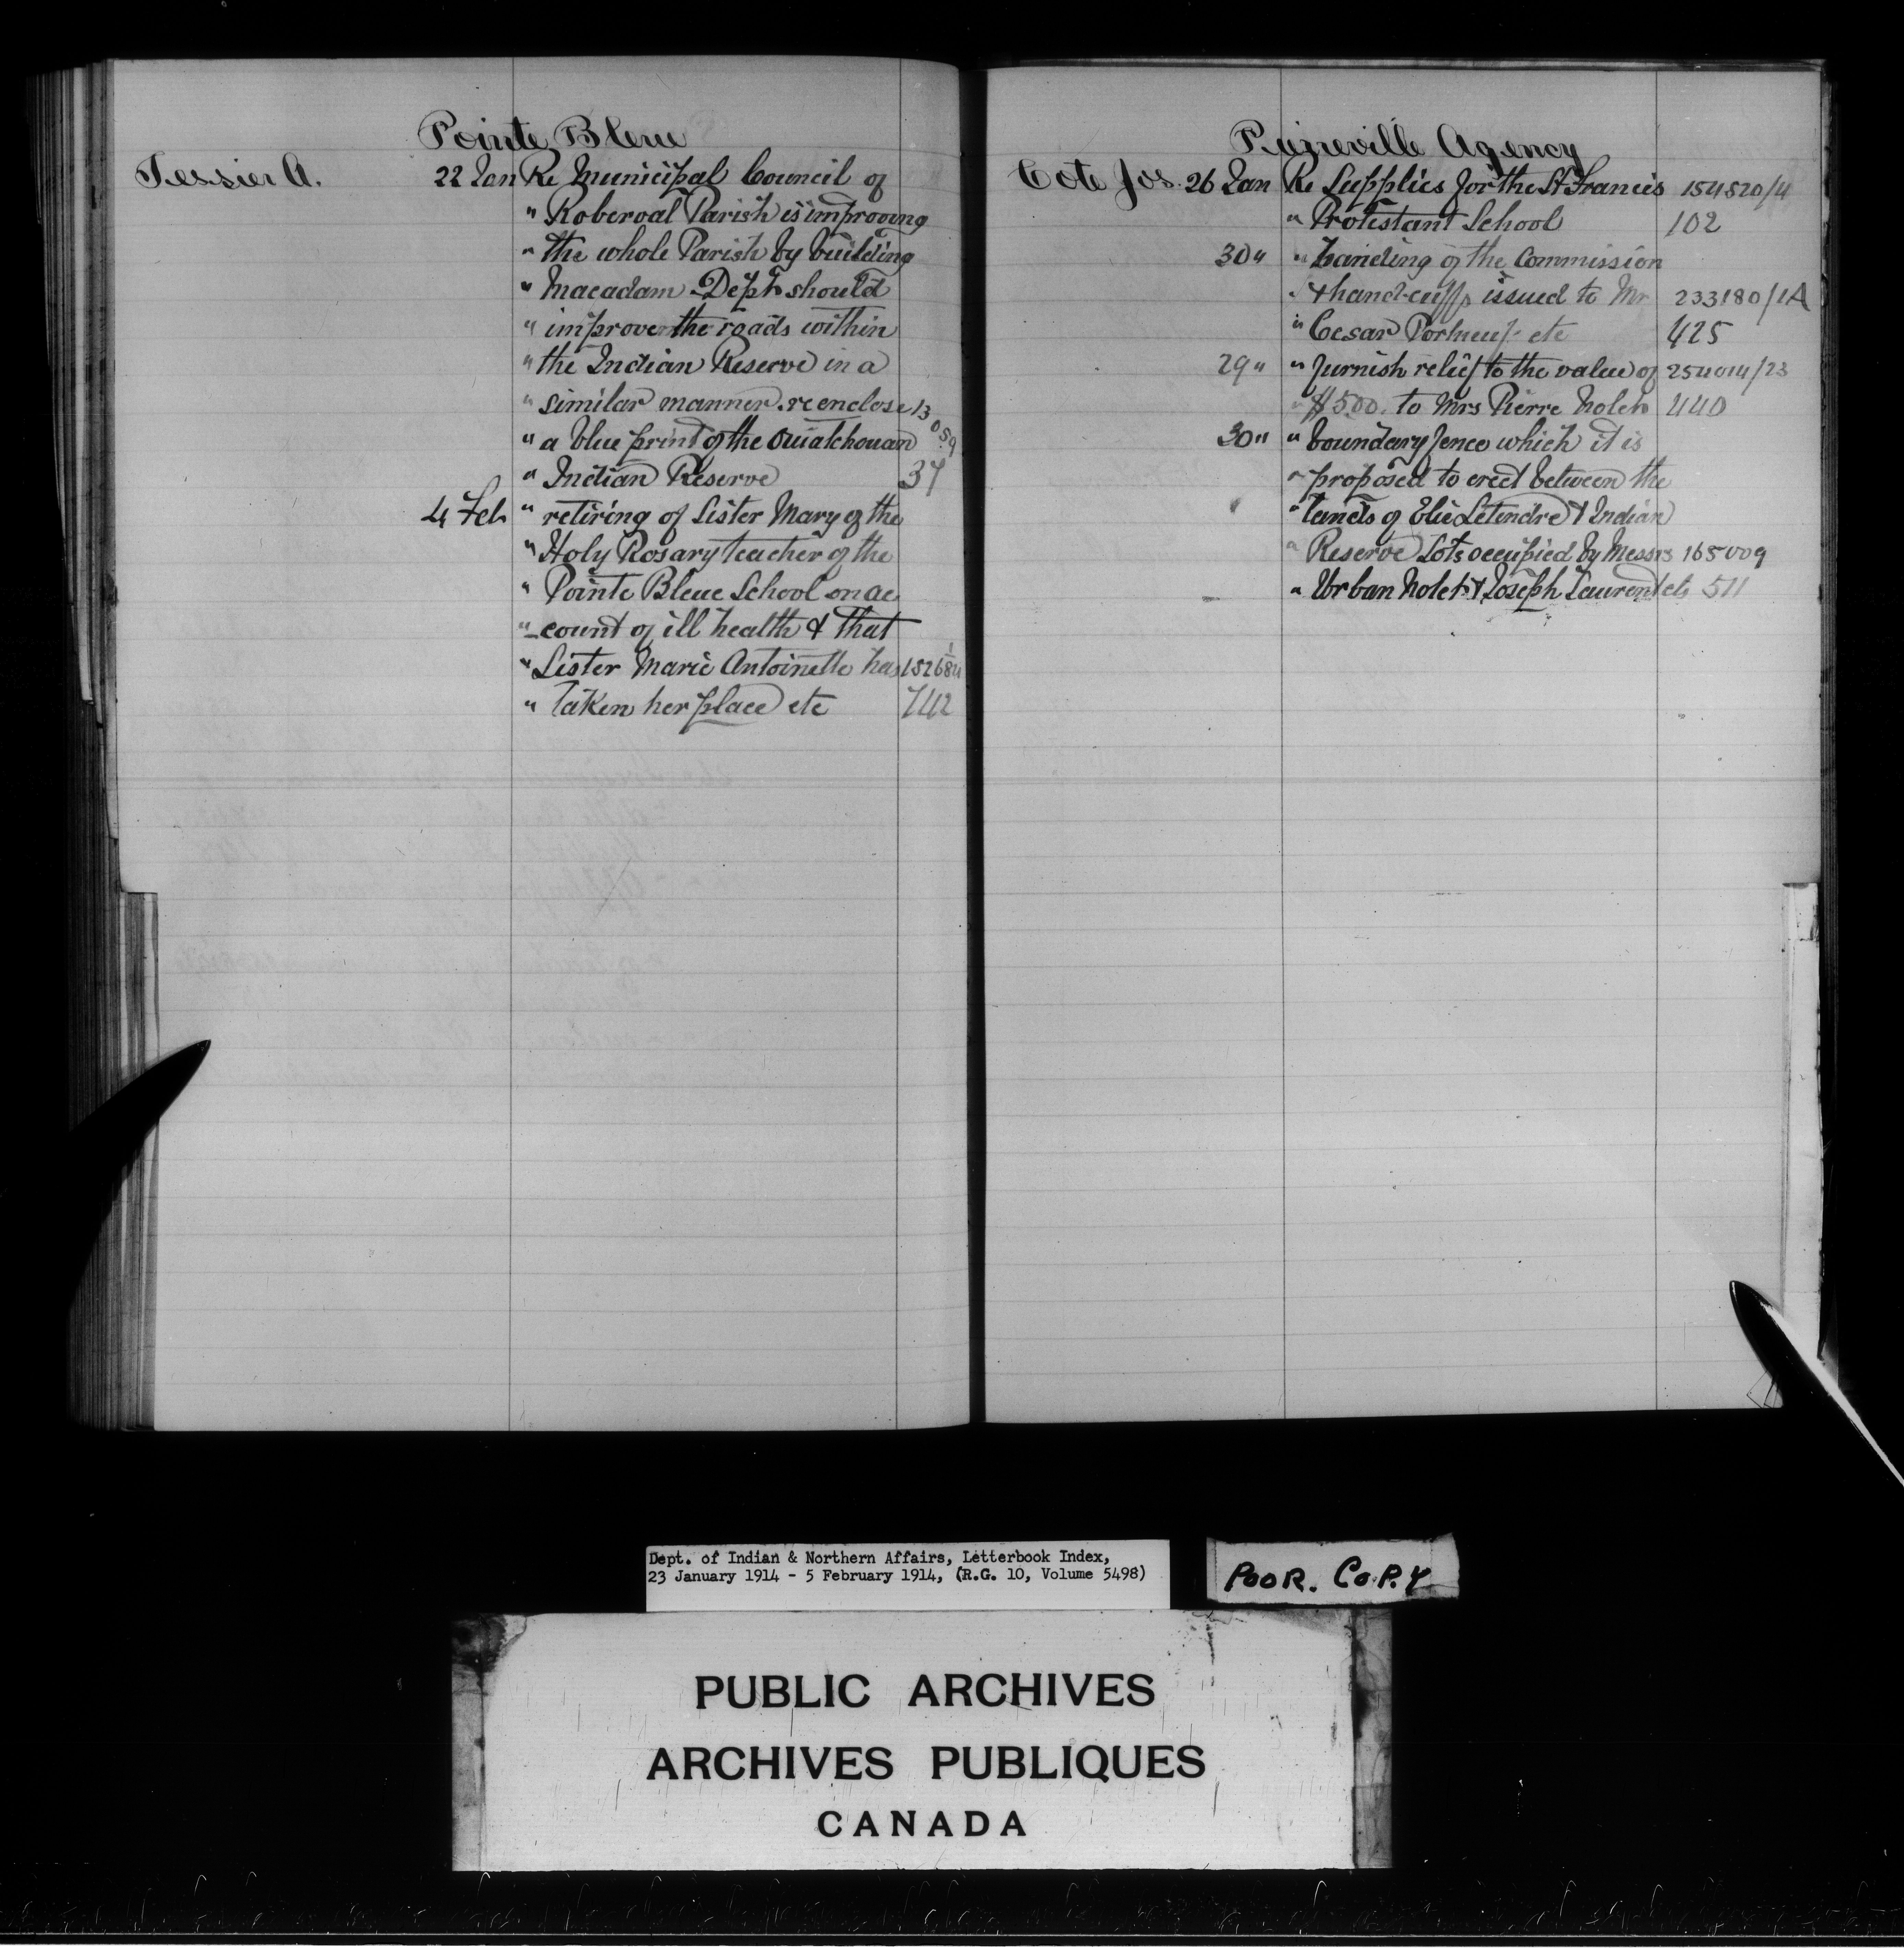 Pointe Bleue
Tessier A. 22 Jan Re Municipal Council of
" Roberval Parish is improving
" the whole Parish by building
" Macadam Dept should
" improve the roads within
" the Indian Reserve in a
" similar manner. re enclose 13059
" a blue print of the Ouiatchouan
" Indian Reserve 37
4 Feb " retiring of Sister Mary of the
" Holy Rosary teacher of the
" Pointe Bleue School on ac
" -count of ill health & that
" Sister Marie Antoinette has 152684/1
" taken her place etc 742
Pierreville Agency
Cote Jos. 26 Jan Re Supplies for the St Francis 154520/4
" Protestant School 102
30 " " handing of the Commission
" & hand-cuffs issued to Mr 233180/1A
" Cesar Portneuf etc 425
29 " " furnish relief to the value of 254014/23
" $5.00. to Mrs Pierre Nolet 440
30 " " boundary fence which it is
" proposed to erect between the
" lands of Elie Letendre & Indian
" Reserve Lots occupied by Messrs 165009
" Urban Nolet & Joseph Laurent etc 511
Dept. of Indian & Northern Affairs, Letterbook Index,
23 January 1914 - 5 February 1914, (R.G. 10, Volume 5498)
POOR. COPY
PUBLIC ARCHIVES
ARCHIVES PUBLIQUES
CANADA